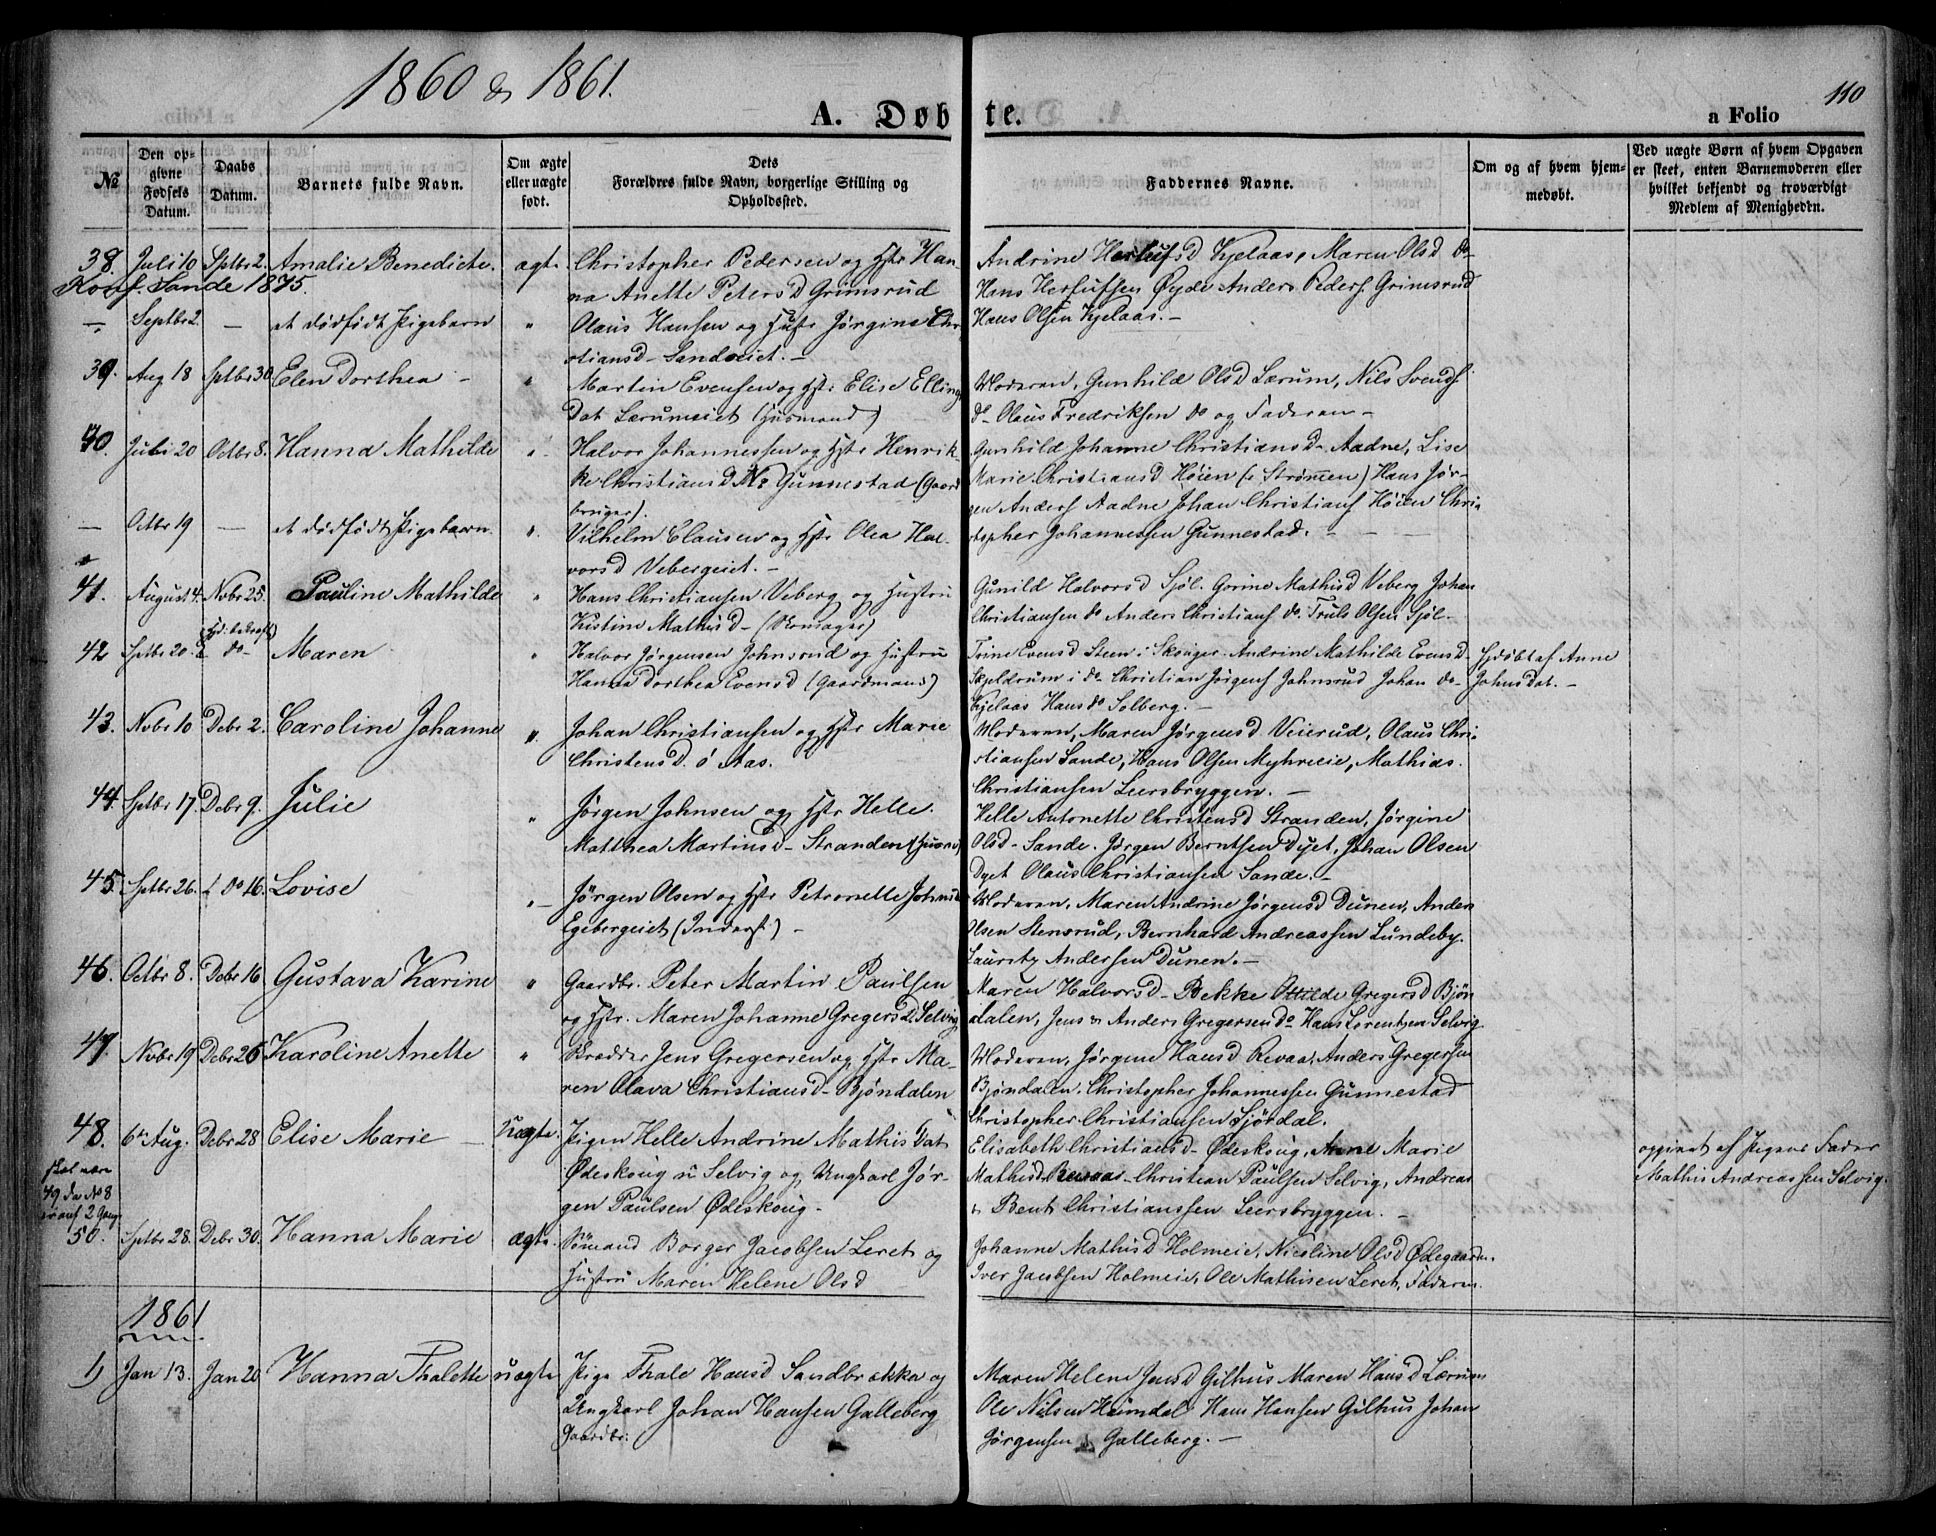 1860 & 1861.
110
A. Døbte.
a Folio
№
Den opgivne Fødsels Datum.
Daabs Datum.
Barnets fulde Navn.
Om ægte eller uægte født.
Dets Forældres fulde Navn, borgerlige Stilling og Opholdssted.
Faddernes Navne.
Om og af hvem hjemmedøbt.
Ved uægte Børn af hvem Opgaven er skeet, enten Barnemoderen eller hvilket bekjendt og troværdigt Medlem af Menigheden.
38. Juli 10 Sptbr 2. Amalie Benedicte. ægte. Christopher Pedersen og Hstr Han-
na Anette Petersd Grimsrud
Konf. Sande 1875.
Andrine Herlufsd Kjelaas, Maren Olsd do
Hans Herlufsen Øyde Anders Peders Grimsrud
Hans Olsen Kjelaas. –
– Septbr 2. – et dødfødt Pigebarn " Olaus Hansen og Hustr Jørgine Chri
stiansd – Sandeeiet. –
39. Aug 18 Sptbr 30 Elen Dorthea – " Martin Evensen og Hstr Elise Elling
Dat Lærumeiet (Husmand)
Moderen, Gunhild Olsd Lærum, Nils Svends
do Olaus Fredriksen do og Faderen –
40. Juli 20 Octbr 8. Hanna Mathilde " Halvor Johannessen og Hstr Henrik-
ke Christiansd Gunnestad (Gaard
bruger).
Gunhild Johanne Christiansd Aadne, Lise
Marie Christiansd Høien (i Strømen) Hans Jør-
gen Anders Aadne Johan Christians Høien Chri
stopher Johannessen Gunnestad. –
– Octbr 19 – et dødfødt Pigebarn. " Vilhelm Clausen og Hstr Olea Hal-
vorsd Vebergeiet. –
41. August 4. Novbr 25. Pauline Mathilde " Hans Christiansen Veberg og Hustru
Kistine Mathisd – (Skomager)
Gunild Halvorsd Sjøl. Gorine Mathisd Veberg Johan
Christiansen do Anders Christians do. Truls Olsen Sjøl –
42 Sptbr 20. do – Maren " Halvor Jørgensen Johnsrud og Hustru
Hanna Dorthea Evensd (Gaardmand)
Trine Evensd Steen i Skoger. Andrine Mathilde Evensd
Skjelderum i do Christian Jørgens Johnsrud Johan do
Kjelaas Hans do Solberg. –
Hjdøbt af Anne
Johnsdat. –
43. Novbr 10 Debr 2. Caroline Johanne " Johan Christiansen og Hstr Marie
Christensd. ó Aas.
Moderen, Maren Jørgensd Veierud, Olaus Chri-
stiansen Sande, Hans Olsen Myhreeie, Mathias
Christiansen Leersbryggen. –
44. Sptbr 17. Debr 9. Julie " Jørgen Johnsen og Hstr Helle.
Matthea Martinsd – Stranden
Helle Antonette Christensd Stranden, Jørgine
Olsd – Sande. Jørgen Berntsen Dyet, Johan Olsen
Dyet Olaus Christiansen Sande. –
45. Sptbr 26. do 16. Lovise " Jørgen Olsen og Hstr Petronelle Johnsd
Egebergeiet (Inderst) –
Moderen, Maren Andrine Jørgensd Dunen, Anders
Olsen Stensrud, Bernhard Andreassen Lundeby.
Lauritz Andersen Dunen. –
46. Octbr 8. Debr 16. Gustava Karine " Gaardbr. Peter Martin Paulsen
og Hstr. Maren Johanne Gregersd Selvig
Maren Halvorsd – Bekke Ottilde Gregersd Bjøn
dalen, Jens & Anders Gregersen do Hans Lorentzen Selvig.
47. Novbr 19 Debr 26 Karoline Anette " Skrædder Jens Gregersen og Hstr Ma-
ren Olava Christiansd – Bjøndalen
Moderen, Jørgine Hansd Revaa, Anders Gregersen
Bjøndalen, Christopher Johannessen Gunnestad
Christopher Christiansen Fjørdal.
48. 6te Aug. Debr 28 Elise Marie – uægte. Pigen Helle Andrine Mathis Dat
Ødeskoug u Selvig og Ungkarl Jør-
gen Paulsen Ødeskoug –
skal være
49 da No 8
er anf 2 Gange
Elisabeth Christiansd Ødeskoug, Anne Marie
Mathisd Revaa – Christian Paulsen Selvig, Andreas
& Bent Christianssen Leersbryggen. –
opgivet af Pigens Fader
Mathis Andreassen Selvig.
50. Sptbr 28. Debr 30. Hanna Marie ægte. Sømand Borger Jacobsen Leret og
Hustru Maren Helene Olsd
Johanne Mathisd Holmeie, Nicoline Olsd Ødegaarden.
Iver Jacobsen Holmeie, Ole Mathisen Leret, Faderen.
1861
1) Jan 13. Jan 20. Hanna Thalette uægte Pige Thale Hansd Sandbrækka og
Ungkarl Johan Hansen Galleberg
Gaardbr.
Maren Helene Jensd Gilhus Maren Hansd Lærum
Ole Nilsen Heimdal Hans Hansen Gilhus Johan
Jørgensen Galleberg. –